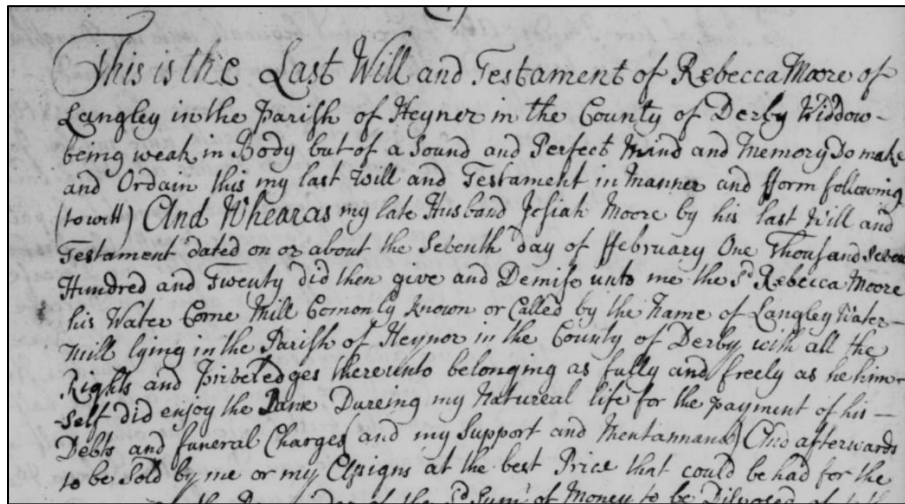 This is the Last Will and Testament of Rebecca Moore of
Langley in the Parish of Heynor in the County of Derby Widdow -
being weak in Body but of a Sound and Perfect Mind and Memory Do make
and Ordain this my last Will and Testament in Manner and fform following
(to witt) And Whearas my late Husband Josiah Moore by his last Will and
Testament dated on or about the Seventh day of ffebruary One Thousand Seven
Hundred and Twenty did then give and Demise unto me the sd Rebecca Moore
his Water Corne Mill Comonly known or Called by the Name of Langley Water-
Mill lying in the Parish of Heynor in the County of Derby with all the
Rights and Priveledges thereunto belonging as fully and freely as he him=
self did enjoy the Same Dureing my Natureal life for the payment of his -
Debts and funeral Charges and my Support and Mentannance And afterwards
to be Sold by me or my Assigns at the best Price that could be had for the
of Money to be